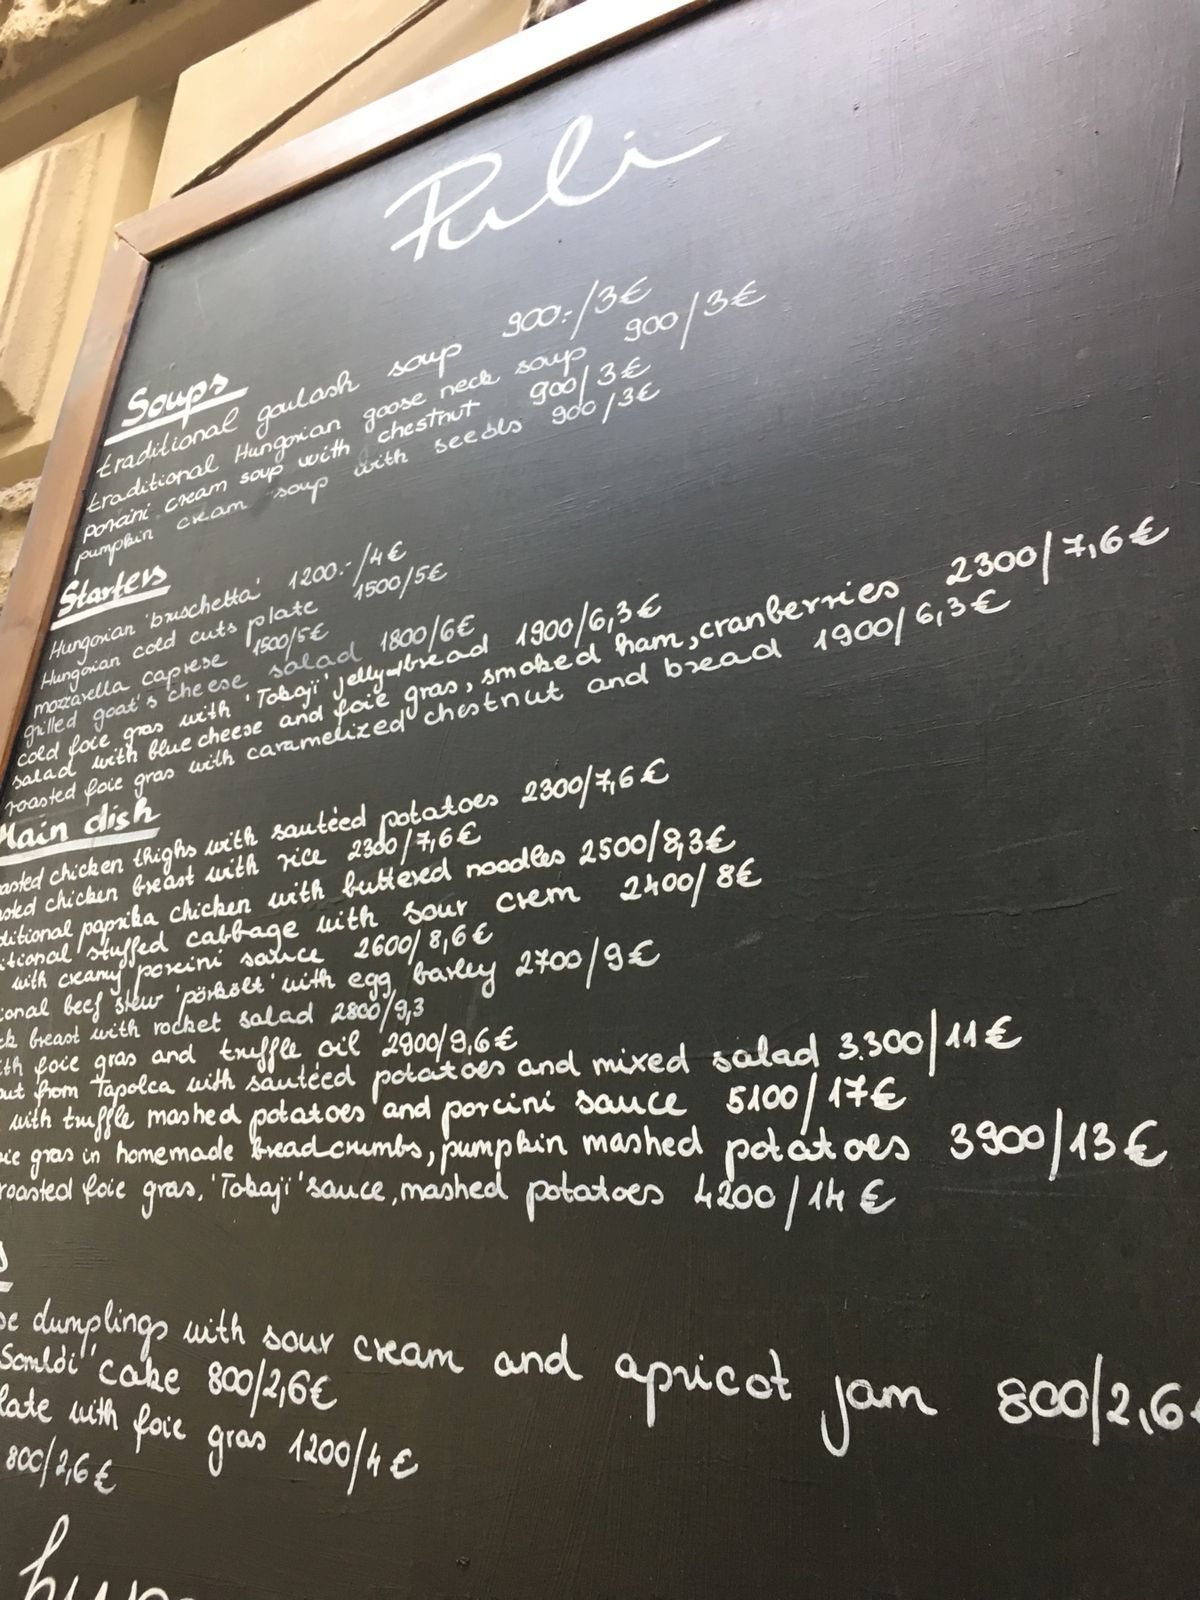 Puli
Soups
traditional goulash soup 900.-/3€
traditional Hungarian goose neck soup 900/3€
porcini cream soup with chestnut 900/3€
pumpkin cream soup with seeds 900/3€
Starters
Hungarian 'bruschetta' 1200.-/4€
Hungarian cold cuts plate 1500/5€
mozzarella caprese 1500/5€
grilled goat's cheese salad 1800/6€
cold foie gras with 'Tokaji' jelly+bread 1900/6,3€
salad with blue cheese and foie gras, smoked ham, cranberries 2300/7,6€
roasted foie gras with caramelized chestnut and bread 1900/6,3€
Main dish
asted chicken thighs with sautéed potatoes 2300/7,6€
sted chicken breast with rice 2300/7,6€
ditional paprika chicken with buttered noodles 2500/8,3€
itional stuffed cabbage with sour crem 2400/8€
with creamy porcini sauce 2600/8,6€
ional beef stew 'pörkölt' with egg barley 2700/9€
ck breast with rocket salad 2800/9,3
ith foie gras and truffle oil 2900/9,6€
out from Tapolca with sautéed potatoes and mixed salad 3.300/11€
with truffle mashed potatoes and porcini sauce 5100/17€
oie gras in homemade breadcrumbs, pumpkin mashed potatoes 3900/13€
roasted foie gras, 'Tokaji' sauce, mashed potatoes 4200/14€
s
se dumplings with sour cream and apricot jam 800/2,6€
"Somlói" cake 800/2,6€
late with foie gras 1200/4€
800/2,6€